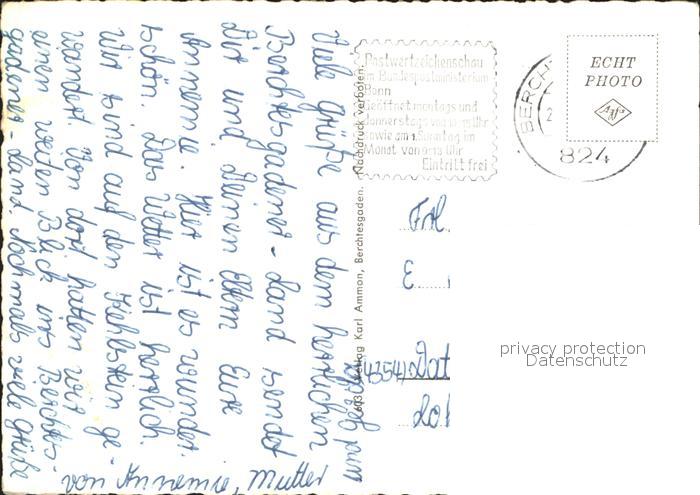 Viele Grüße aus dem herrlichen
Berchtesgadener-Land sendet
Dir und Deinen Eltern Eure
Annemie. Hier ist es wunder
schön. Das Wetter ist herrlich
Wir sind auf den Kehlstein ge
wandert. Von dort hatten wir
einen weiten Blick ins Berchtes-
gadener-Land. Nochmals viele Grüße
von Annemie, Mutter
603 Verlag Karl Ammon, Berchtesgaden. Nachdruck verboten.
Postwertzeichenschau
im Bundespostministerium
Bonn
Geöffnet montags und
donnerstags von 10-15 Uhr
sowie am 1. Sonntag im
Monat von 9-13 Uhr
Eintritt frei
BERCHT
824
ECHT
PHOTO
Agfa
Frl.
E
(4354) Dat
privacy protection
Datenschutz